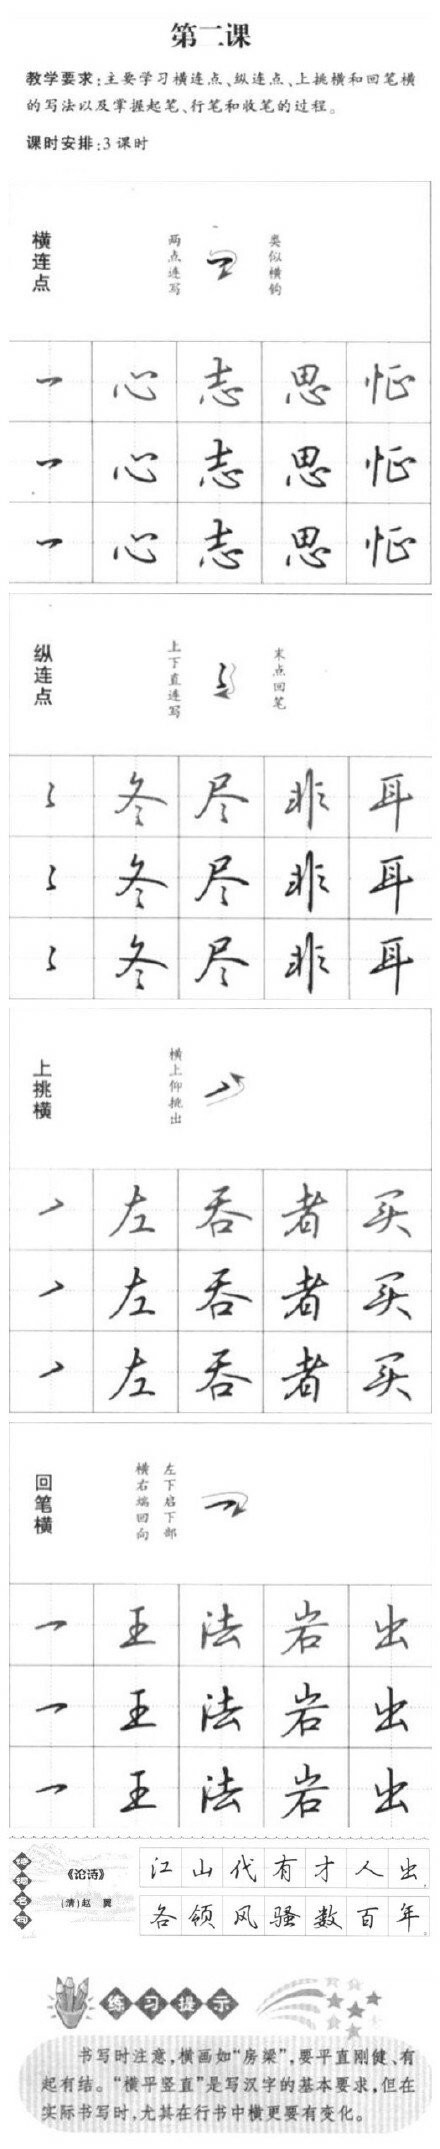 第二课
教学要求:主要学习横连点、纵连点、上挑横和回笔横
的写法以及掌握起笔、行笔和收笔的过程。
课时安排:3课时
横连点
两点连写
类似横钩
心志思怔
心志思怔
心志思怔
纵连点
上下直连写
末点回笔
冬尽非耳
冬尽非耳
冬尽非耳
上挑横
横上仰挑出
左吞者买
左吞者买
左吞者买
回笔横
横右端回向
左下启下部
一王法岩出
一王法岩出
一王法岩出
《论诗》
(清)赵 翼
江山代有才人出,
各领风骚数百年。
练习提示
书写时注意,横画如“房梁”,要平直刚健、有
起有结。“横平竖直”是写汉字的基本要求,但在
实际书写时,尤其在行书中横更要有变化。